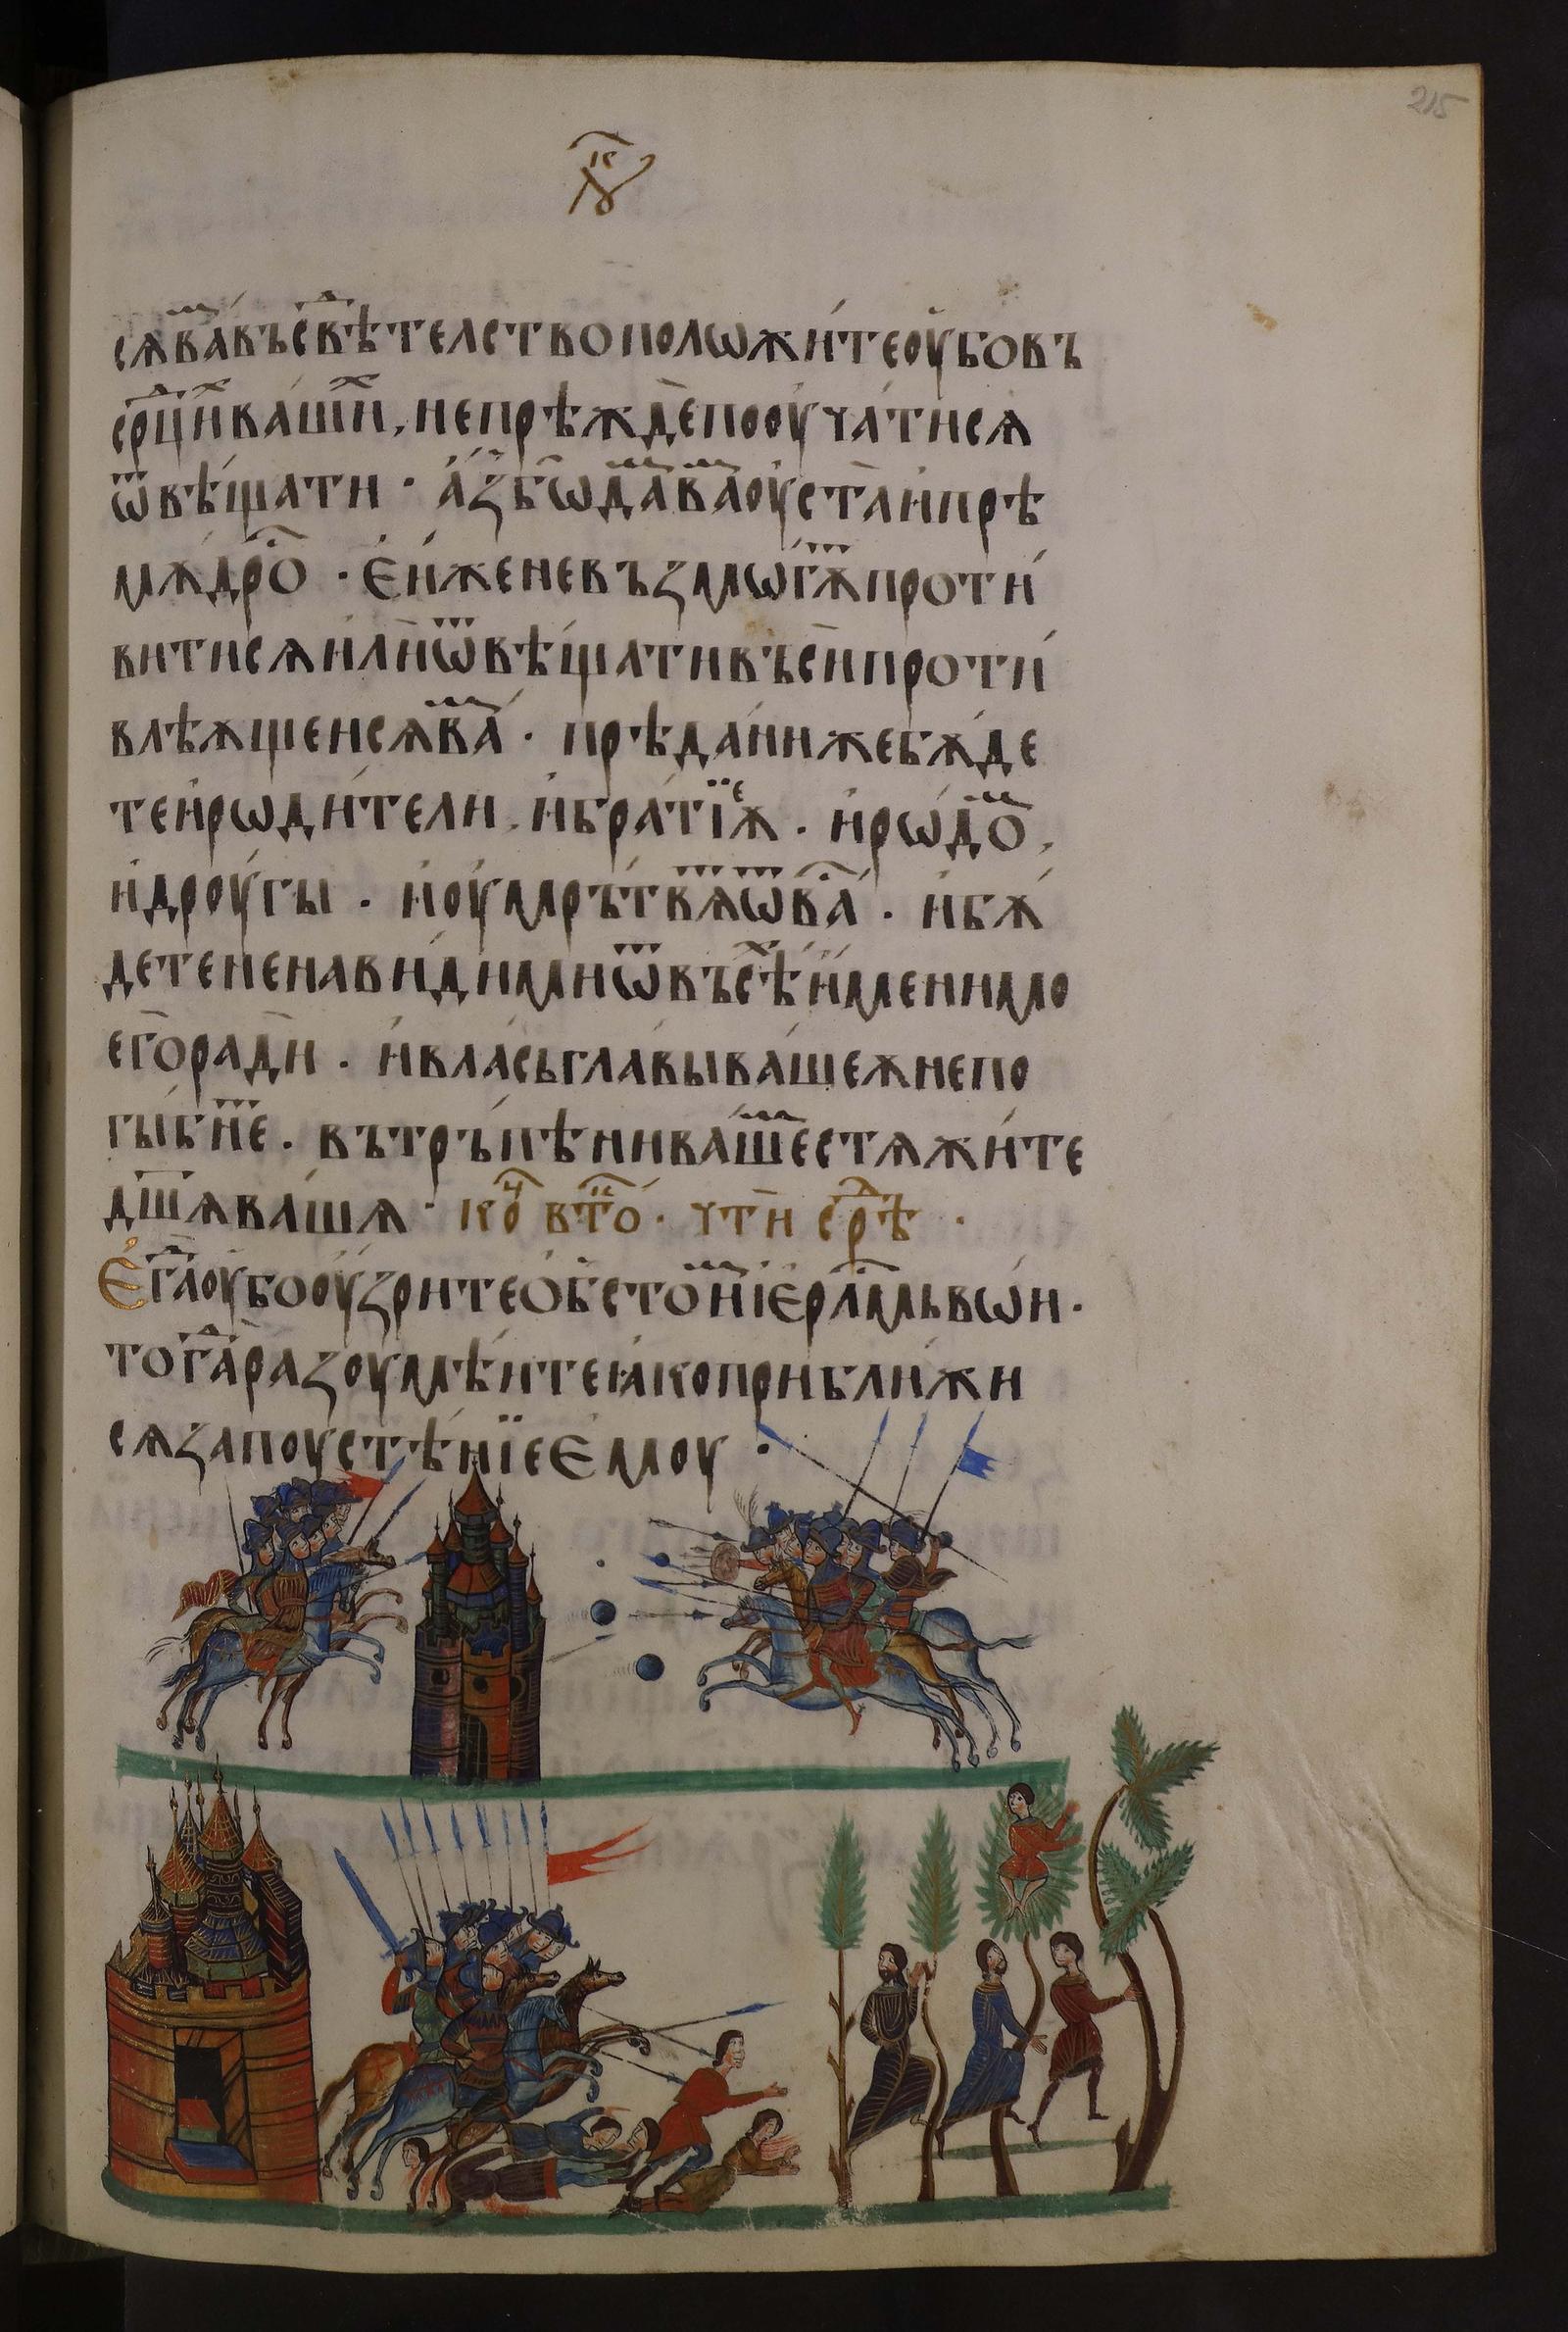 215
сѧ вамъ свѣⷣтелство полѡжите оубо въ
срⷣцихъ вашиⷯ, не прѣжде пооучатисѧ
ѿвѣщати · азъ бѡ дамъ вамъ оуста и прѣ
мѫдро · еиже не възмѡгѫтъ проти
витисѧ или ѿвѣщати въси проти
влѣѫщеисѧ ваⷨ · прѣдани же бѫде
те и рѡдители, и братїеѫ · и рѡдоⷨ,
и дроугы · и оумрътвѧтъ ѿ ваⷭ · и бѫ
дете ненавидими ѿ въсѣⷯ имени мо
его ради · и власъ главы вашеѫ не по
гыбнеⷮ · въ тръпѣни вашеⷨ стѧжите
дш҃ѧ вашѧ · коⷰ҇ втоⷦ · чти среⷣ ·
Егⷣа оубо оузрите обстоимь іерⷭлмь вѡи ·
тогⷣа разоумѣите ꙗко приближи
сѧ запоустѣнїе емоу ·